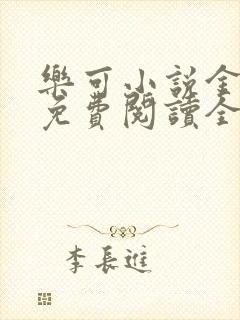 樂可小説全
免費閱讀全
李長進